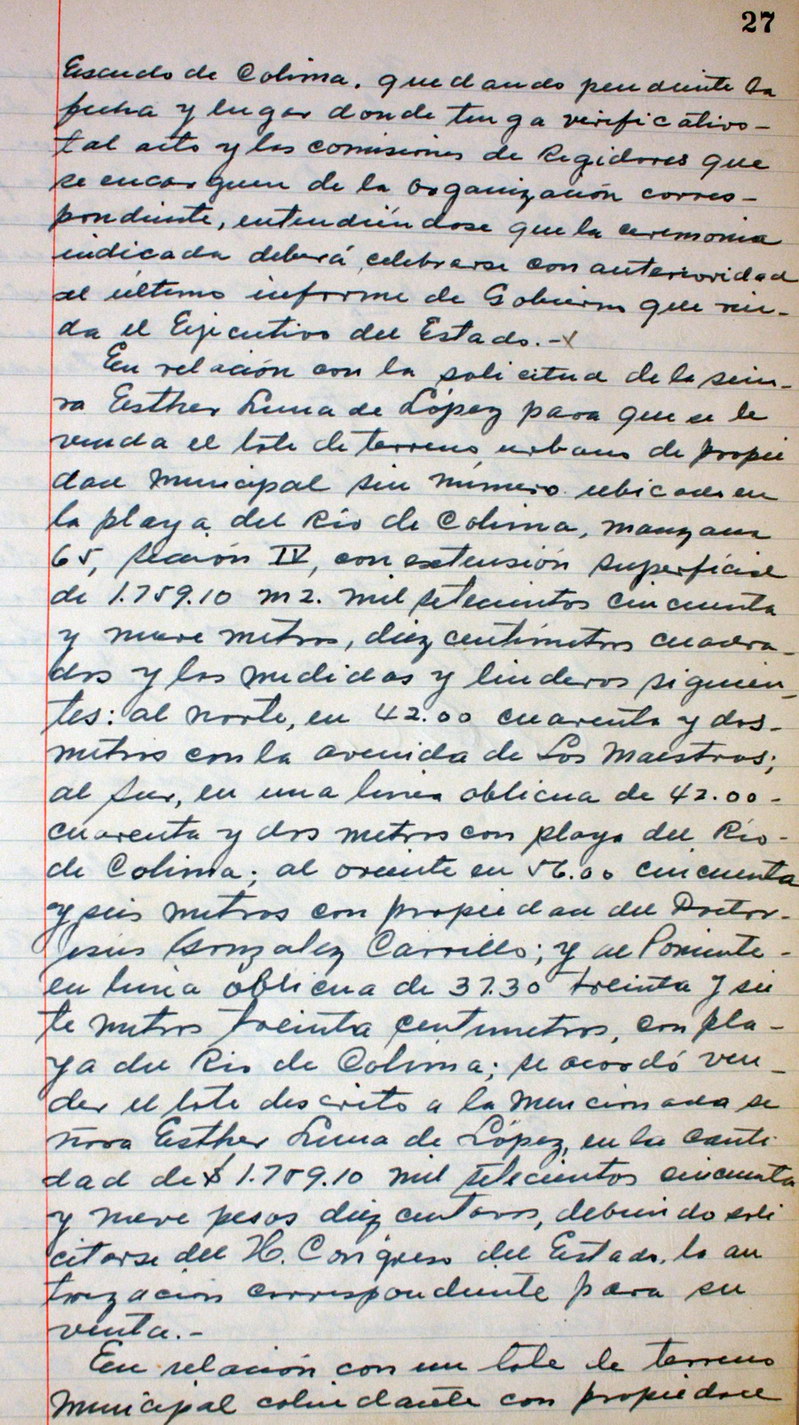 27
Escudo de Colima. quedando pendiente la
fecha y lugar donde tenga verificativo-
tal acto y las comisiones de Regidores que
se encarguen de la organización corres-
pondiente, entendiéndose que la ceremonia
indicada deberá celebrarse con anterioridad
al último informe de Gobierno que rin-
da el Ejecutivo del Estado.-
En relación con la solicitud de la seño-
ra Esther Luna de López para que se le
venda el lote de terreno urbano de propie
dad Municipal sin número ubicado en
la playa del Río de Colima, manzana
65, Sección IV, con extensión superficial
de 1.759.10 m2. mil setecientos cincuenta
y nueve metros, diez centímetros cuadra-
dos y las medidas y linderos siguien-
tes: al norte, en 42.00 cuarenta y dos-
metros con la avenida de Los Maestros;
al sur, en una línea oblicua de 42.00-
cuarenta y dos metros con playa del Río-
de Colima; al oriente en 56.00 cincuenta
y seis metros con propiedad del Doctor-
Jesús González Carrillo; y al Poniente-
en línea oblicua de 37.30 treinta y sie
te metros treinta centímetros, con pla-
ya del Río de Colima; se acordó ven-
der el lote descrito a la mencionada se
ñora Esther Luna de López, en la canti
dad de $ 1.759.10 mil setecientos cincuenta
y nueve pesos diez centavos, debiendo soli
citarse del H. Congreso del Estado, la au
torización correspondiente para su
venta.-
En relación con un lote de terreno
Municipal colindante con propiedad